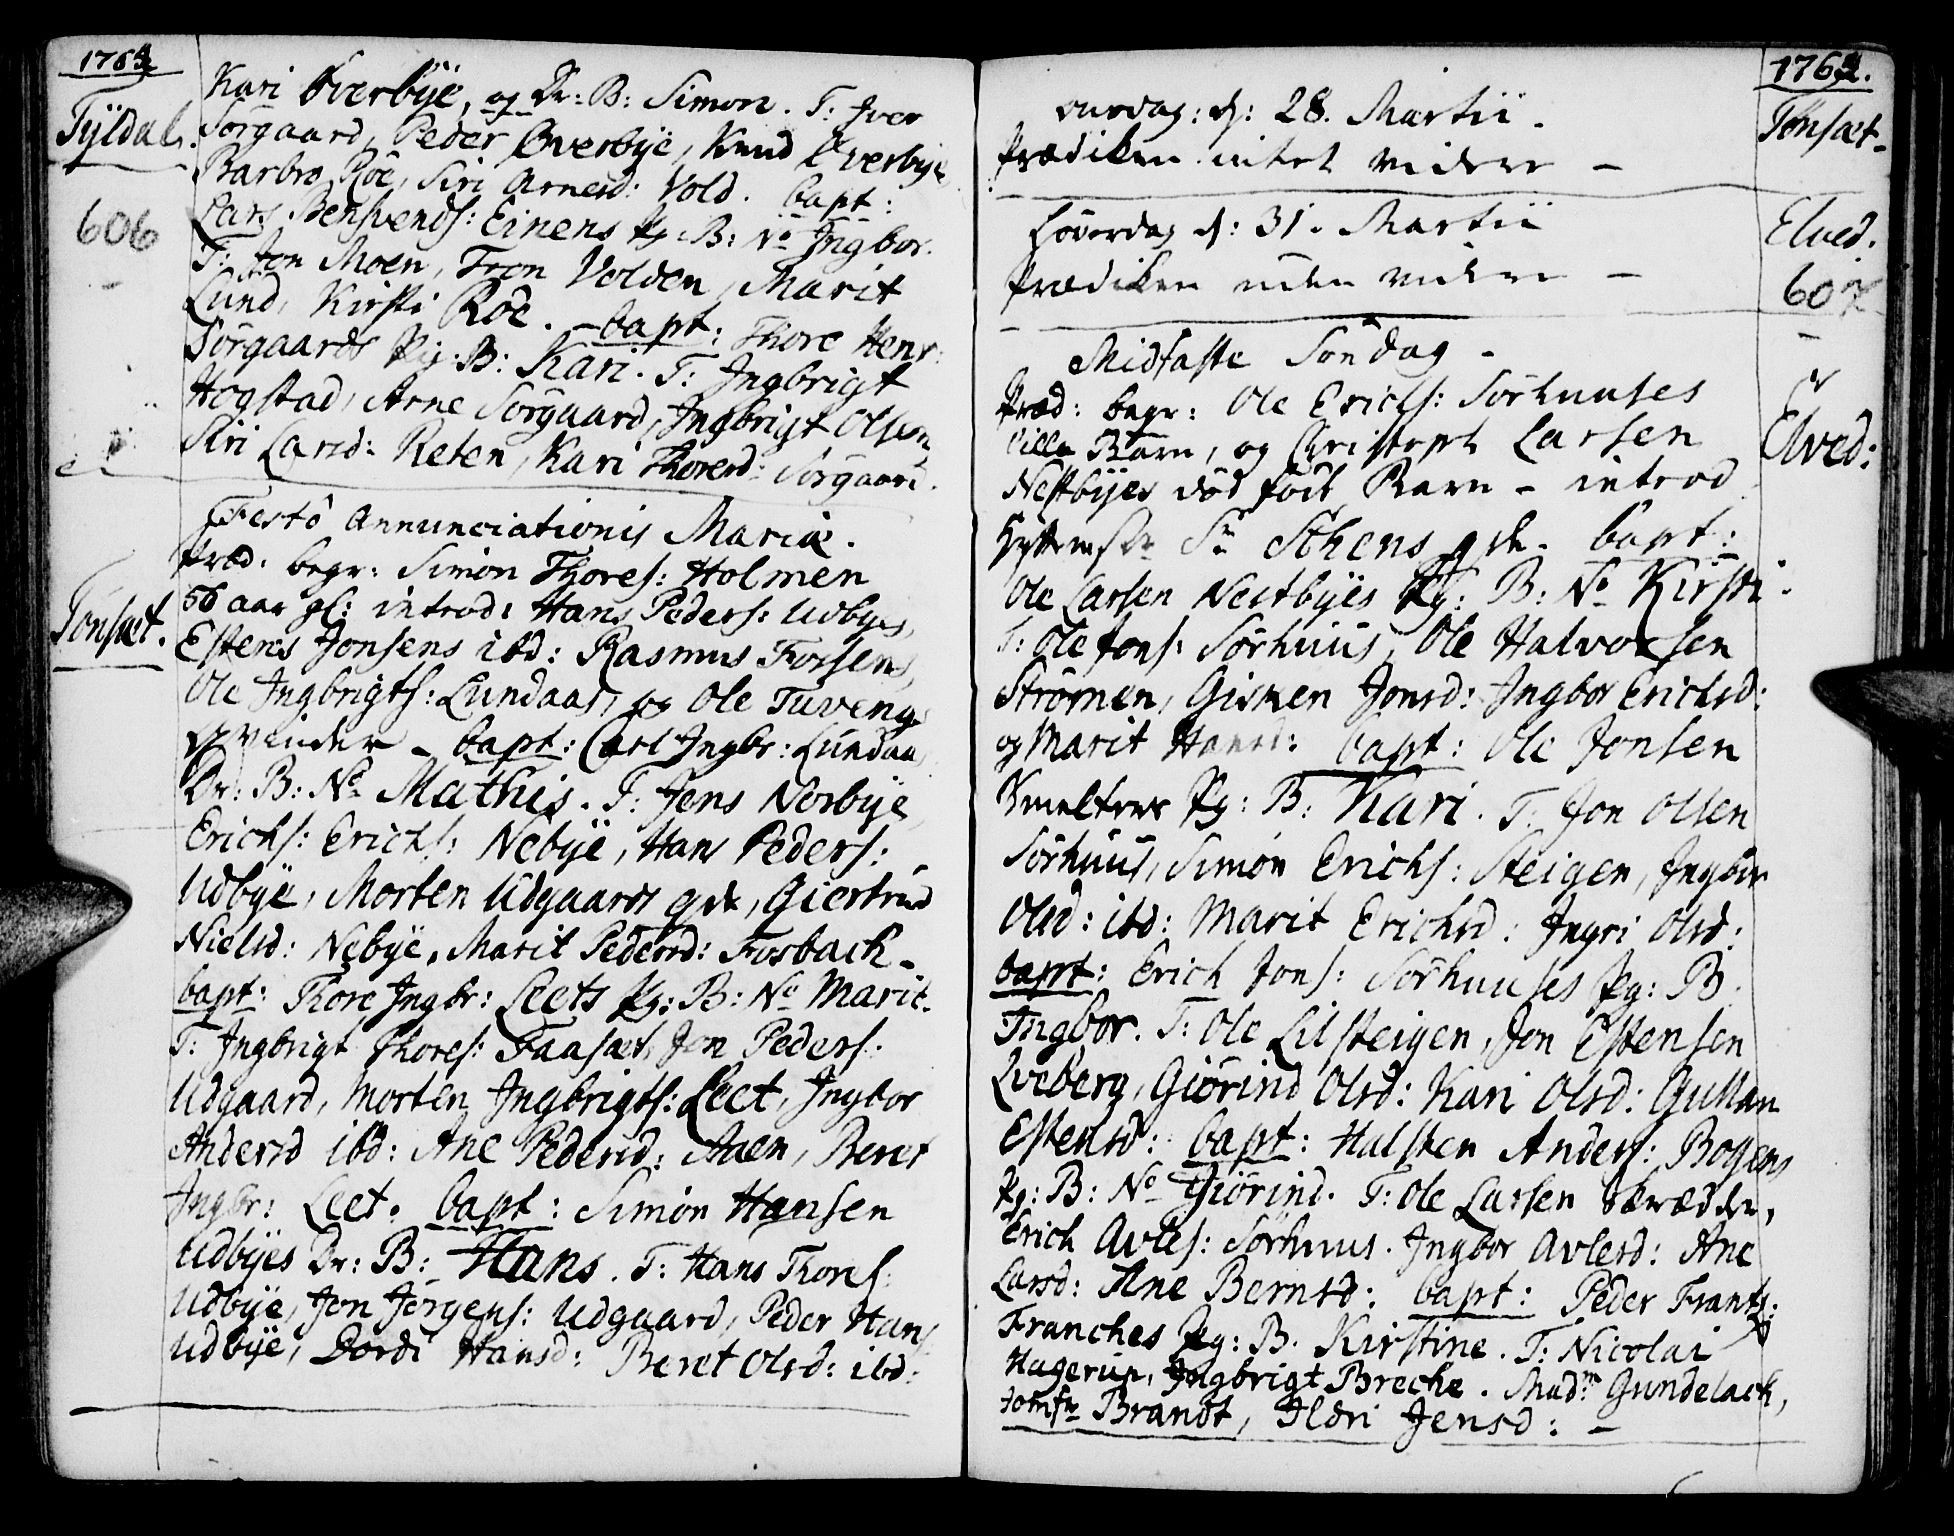 1764
Tÿldal.
606
Kari Øverbÿe, og Dr: B: Simon. T: Iver
Sørgaard, Peder Øverbÿe, Knud Øverbÿe
Barbro Röe, Siri Arnesd: Vold. bapt:
Lars Bersvends: Einens Pg: B: No Ingbor.
T: Jon Moen, Tron Volden, Marit
Lund, Kirsti Röe. – bapt: Thore Henr:
Sörgaards Pig: B: Kari. T: Ingbrigt
Hogstad, Arne Sörgaard, Ingbrigt Olsen
Siri Larsd: Reten, Kari Thoresd: Sörgaard.
Tönsæt.
Festo Annunciationis Mariæ.
Præd: begr: Simon Thores: Holmen
56 aar gl: introd: Hans Peders: Udbyes,
Estens Jonsens ibd: Rasmus Fossens,
Ole Ingbrigts: Lundaas, og Ole Tuvengs
qvinder – bapt: Carl Ingbr: Lundaas
Dr: B: No Mathis. T: Jens Norbÿe,
Erichs: Erichs: Nebÿe, Hans Peders:
Udbÿe, Morten Udgaards gde, Giertrud
Nielsd: Nebÿe, Marit Pedersd: Fosbach –
bapt: Thore Ingbr: Leets Pg: B: No Marit.
T: Ingbrigt Thores: Faasæt, Jon Peders:
Udgaard, Morten Ingbrigts: Leet, Ingbor
Andersd ibd: Ane Pedersd: Aaen, Beret
Ingbr: Leet. bapt: Simon Hansen
Udbÿes Dr: B: Hans. T: Hans Thores:
Udbÿe, Jon Jörgens: Udgaard, Peder Hans
Udbÿe, Dordi Hansd: Beret Olsd: ibd:
1764.
Tönsæt.
Onsdag: d: 28. Martii.
Prædiken intet videre –
Elved.
607
Löverdag d: 31. Martii
Prædiken uden videre –
Midfaste Söndag –
Elved:
Præd: begr: Ole Erichs: Sörhuuses
lille Barn, og Christoph Larsen
Nestbÿes död födt Barn – introd
Sr Sthens qde. bapt:
Ole Larsen Nestbÿes Pg: B: No Kirsti.
T: Ole Jons: Sörhuus, Ole Halvorsen
Strömen, Gisken Jonsd: Ingbor Erichsd:
og Marit Hansd: bapt: Ole Jonsen
Smelters Pg: B: Kari. T: Jon Olsen
Sörhuus, Simon Erichs: Steigen, Ingbor
Olsd: ibd: Marit Erichsd: Ingri Olsd:
bapt: Erich Jons: Sörhuuses Pg: B.
Ingbor. T: Ole Lilsteigen, Jon Estensen
Lveberg, Giörind Olsd: Kari Olsd: Gullau
Estensd: bapt: Halsten Anders: Bogens
Pg: B: No Giörind. T: Ole Larsen Skrædder,
Erich Avles: Sörhuus. Ingbor Avlesd: Ane
Larsd: Ane Berntsd: bapt: Peder Frantz:
Franches Pg: B. Kirstine. T: Nicolai
Hagerup, Ingbrigt Breche. Madm Gundelach,
Jomfr Brandt, Ildri Jensd: –